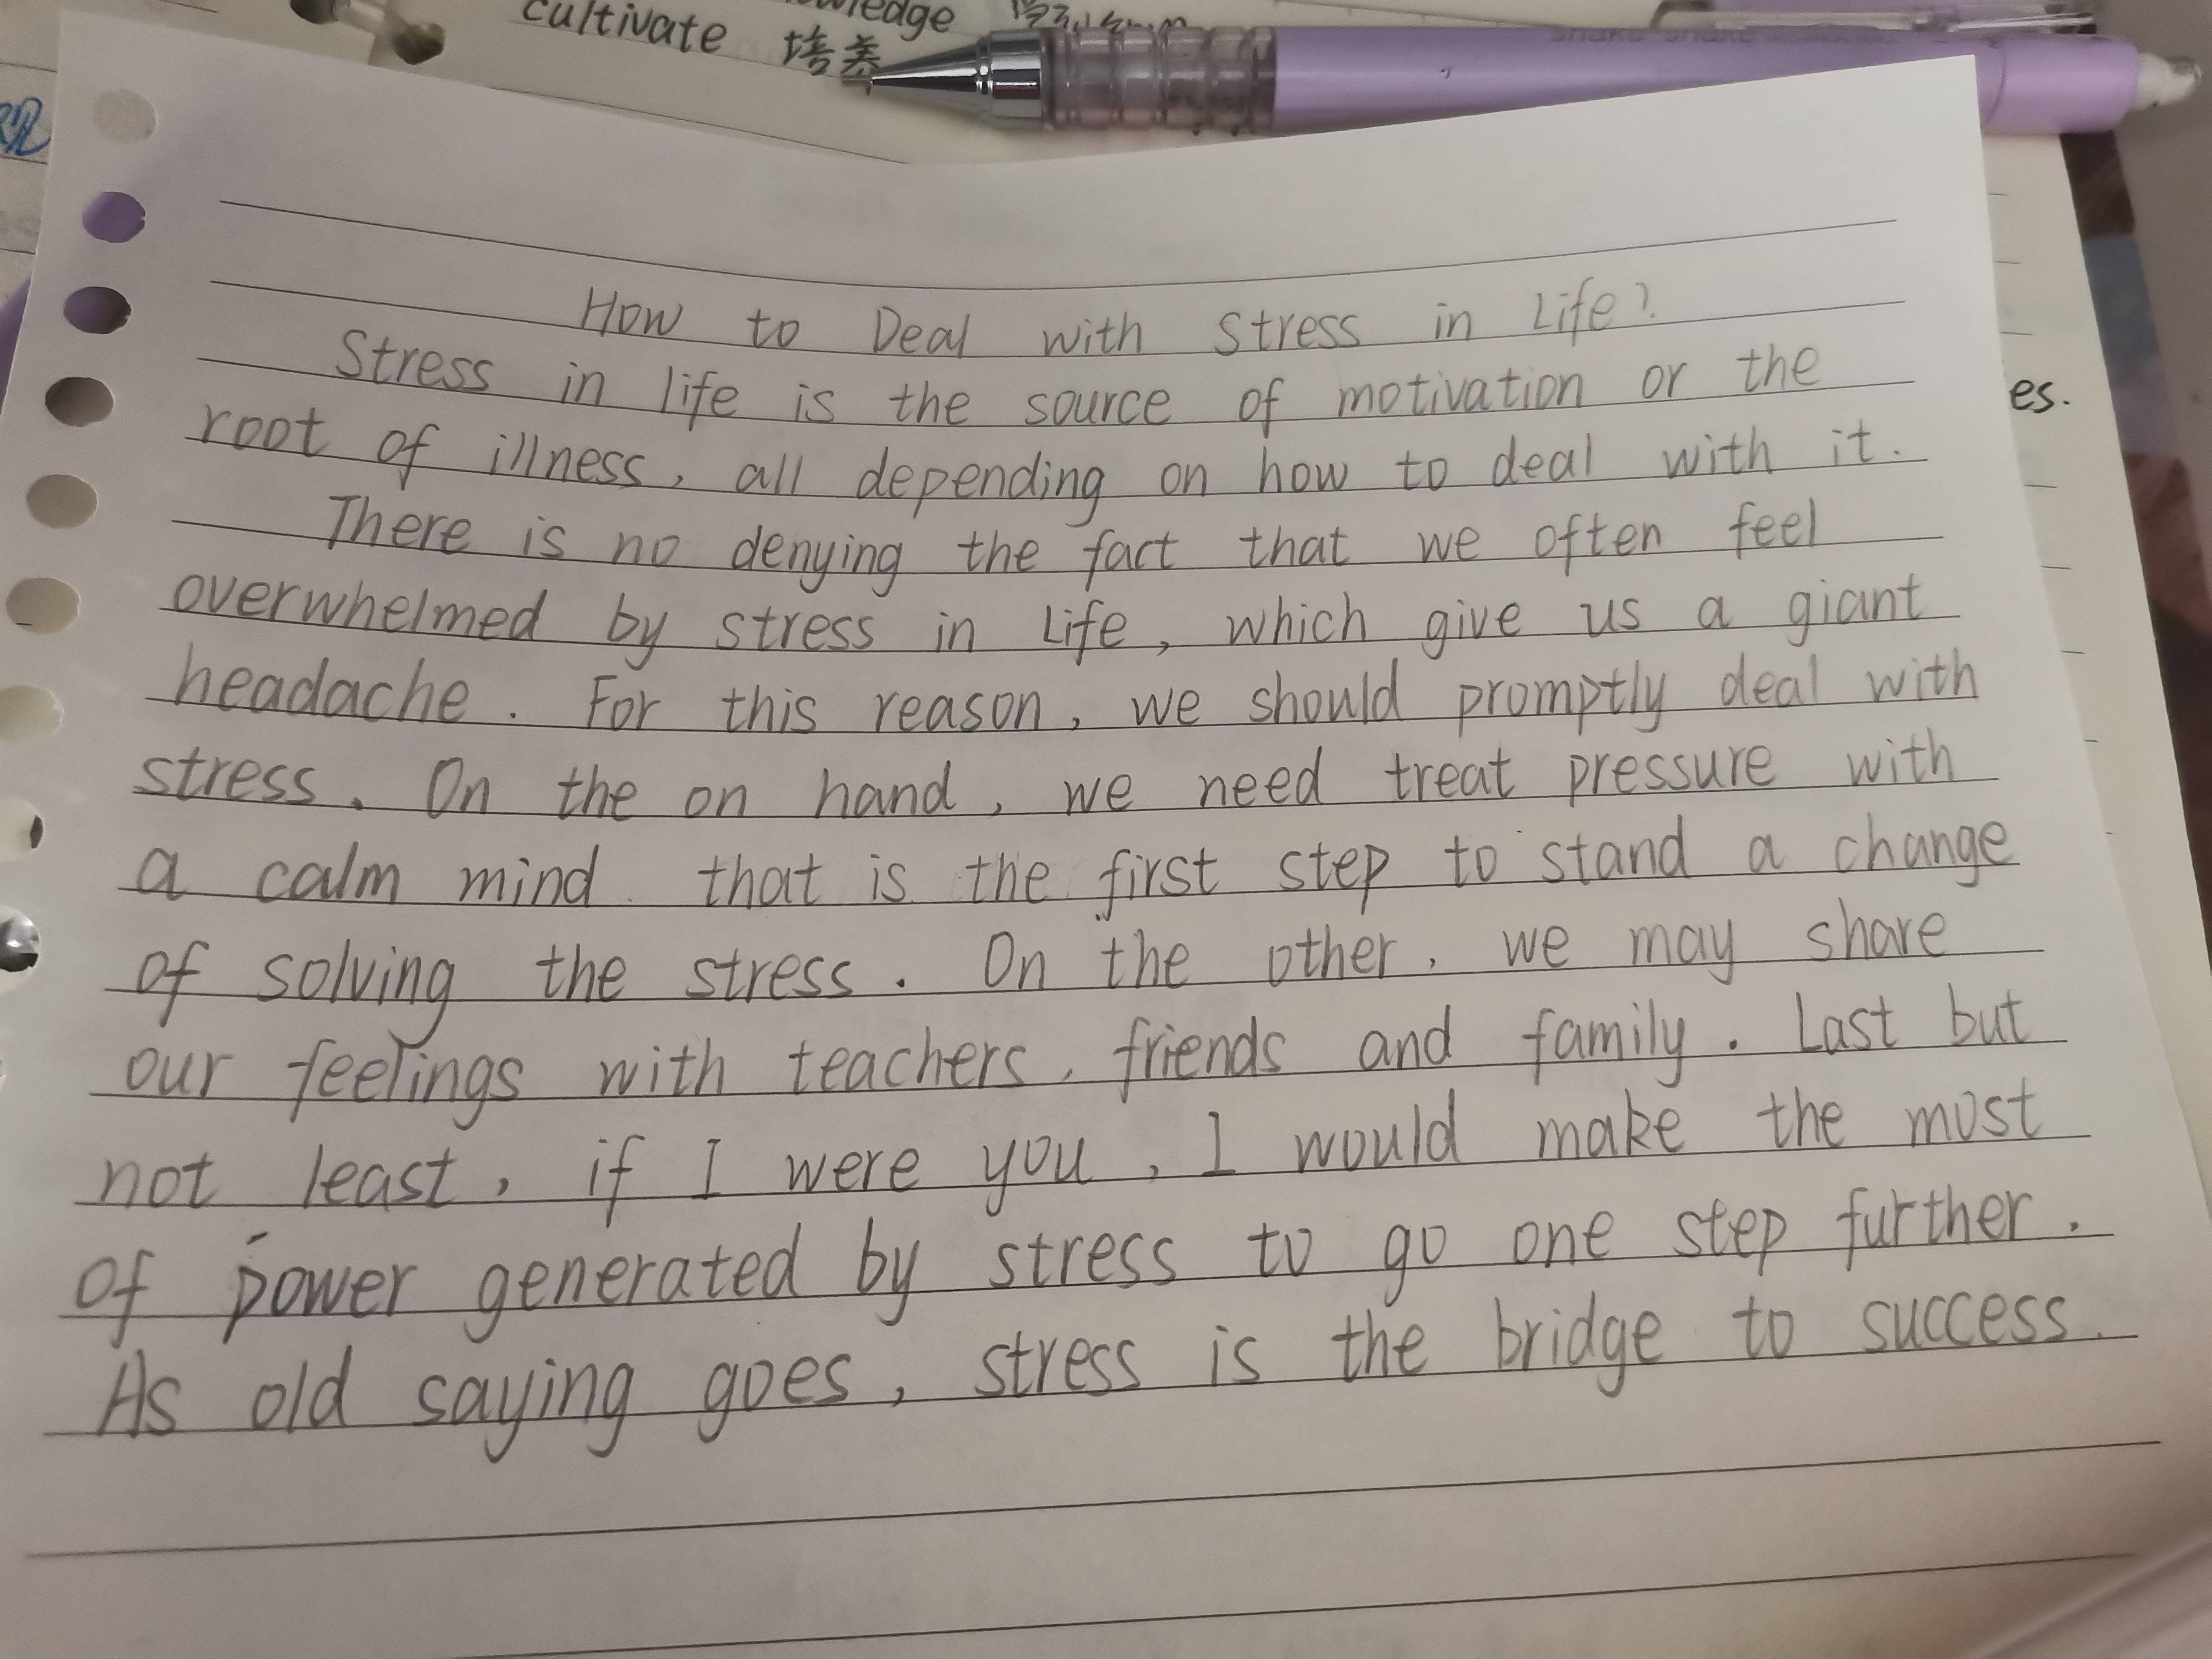 cultivate 培养
How to Deal with Stress in Life?
Stress in life is the source of motivation or the
root of illness, all depending on how to deal with it.
There is no denying the fact that we often feel
overwhelmed by stress in Life, which give us a giant
headache. For this reason, we should promptly deal with
stress. On the on hand, we need treat pressure with
a calm mind. that is the first step to stand a change
of solving the stress. On the other, we may share
our feelings with teachers, friends and family. Last but
not least, if I were you, I would make the most
of power generated by stress to go one step further.
As old saying goes, stress is the bridge to success.
es.